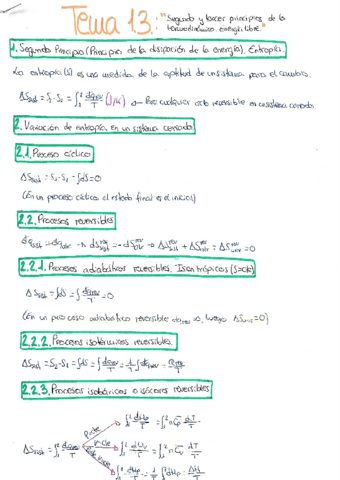 Tema 13: "Segundo y tercer principios de la
termodinámica. Energía libre."
1. Segundo Principio (Principio de la disipación de la energía). Entropía.
La entropía (S) es una medida de la aptitud de un sistema para el cambio.
ΔSsist = Sf - Si = ∫₁² dqrev/T (J/K) → Para cualquier ciclo reversible en un sistema cerrado.
2. Variación de entropía en un sistema cerrado
2.1. Proceso cíclico
ΔSsist = S₂ - S₁ = ∫dS = 0
(En un proceso cíclico el estado final es el inicial)
2.2. Procesos reversibles
2.2.1. Procesos adiabáticos reversibles. Isentrópicos (S=cte)
ΔSsist = ∫dS = ∫ dqrev/T = 0
(En un proceso adiabático reversible dqrev = 0, luego ΔSsist = 0)
2.2.2. Procesos isotérmicos reversibles.
ΔSsist = S₂ - S₁ = ∫dS = ∫ dqrev/T = 1/T ∫dqrev = qrev/T
2.2.3. Procesos isobáricos o isócoros reversibles
P=cte ∫₁² dHp/T = ∫₁² n Cp dT/T
ΔSsist = ∫₁² dqrev/T V=cte ∫₁² dUv/T = ∫₁² n Cv dT/T
∫₁² dHp/T = 1/T ∫₁² dHp = ΔH/T